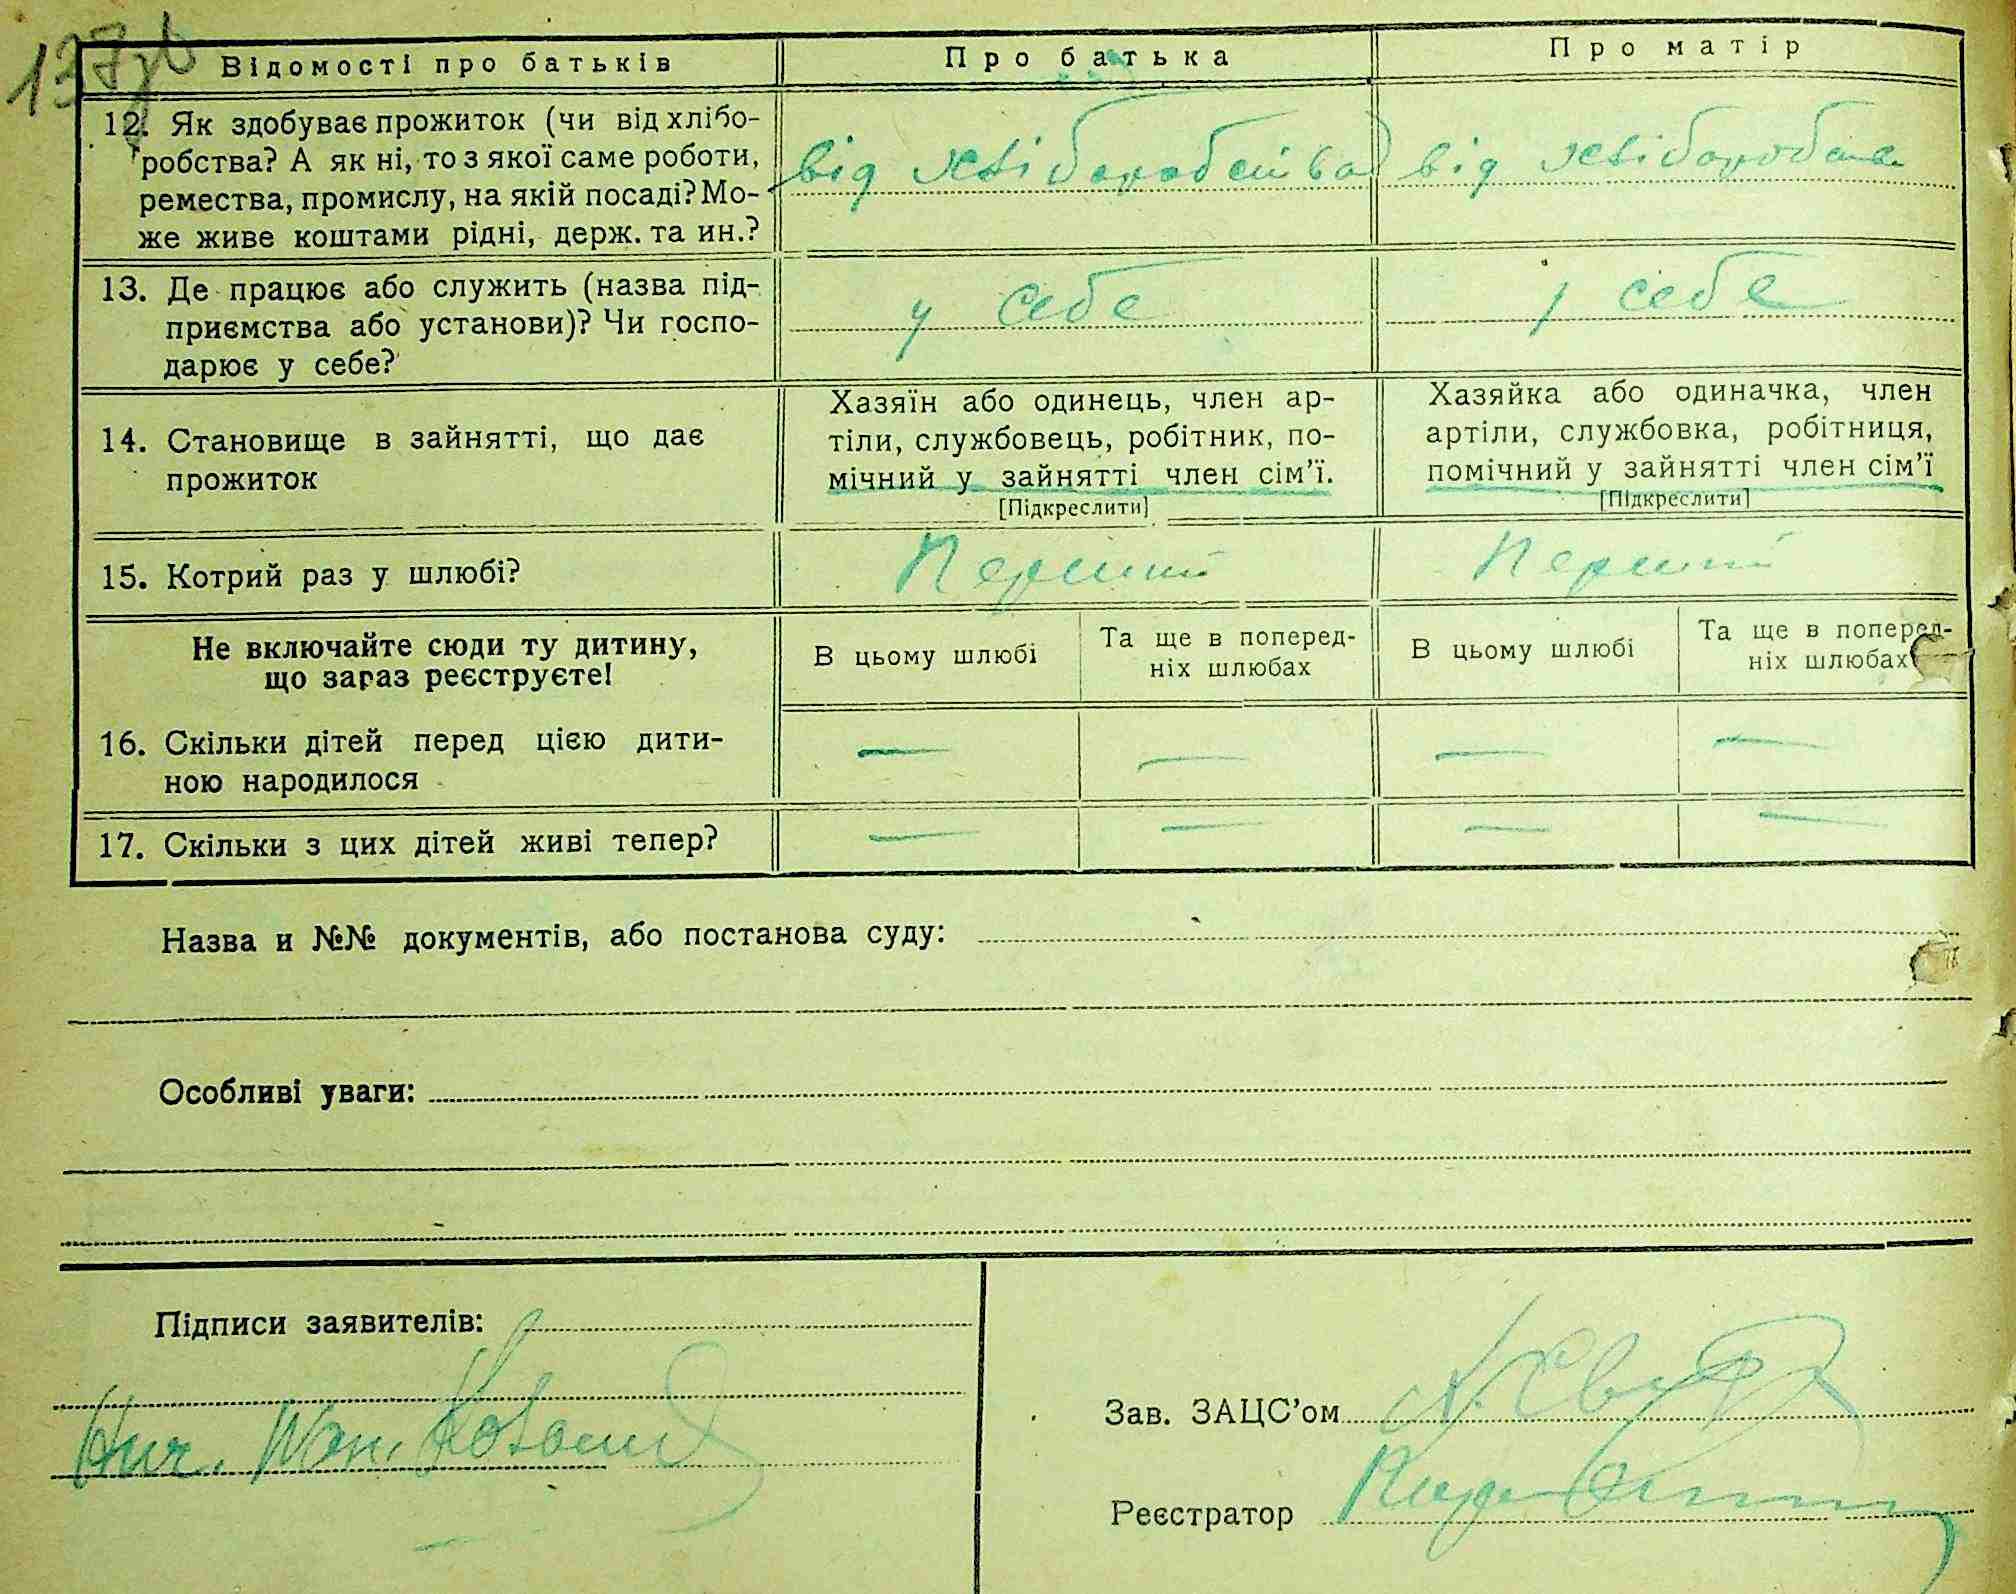 137
Відомості про батьків
Про батька
Про матір
12. Як здобуває прожиток (чи від хлібо-
робства? А як ні, то з якої саме роботи,
ремества, промислу, на якій посаді? Мо-
же живе коштами рідні, держ. та ин.?
від хліборобства
від хліборобства
13. Де працює або служить (назва під-
приємства або установи)? Чи госпо-
дарює у себе?
у себе
у себе
14. Становище в зайнятті, що дає
прожиток
Хазяїн або одинець, член ар-
тіли, службовець, робітник, по-
мічний у зайнятті член сім'ї.
[Підкреслити]
Хазяйка або одиначка, член
артіли, службовка, робітниця,
помічний у зайнятті член сім'ї
[Підкреслити]
15. Котрий раз у шлюбі?
Перший
Перший
Не включайте сюди ту дитину,
що зараз реєструєте!
В цьому шлюбі
Та ще в поперед-
ніх шлюбах
В цьому шлюбі
Та ще в поперед-
ніх шлюбах
16. Скільки дітей перед цією дити-
ною народилося
— — — —
17. Скільки з цих дітей живі тепер?
— — — —
Назва и №№ документів, або постанова суду:
Особливі уваги:
Підписи заявителів:
Зав. ЗАЦС'ом
Реєстратор